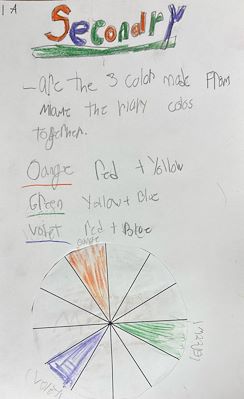 1 A
Secondry
- are the 3 color made from
the colos
together.
Oange red + Yellow
Green Yallow + Blue
Voilet red + Blue
Oange
(Green)
(Voilet)